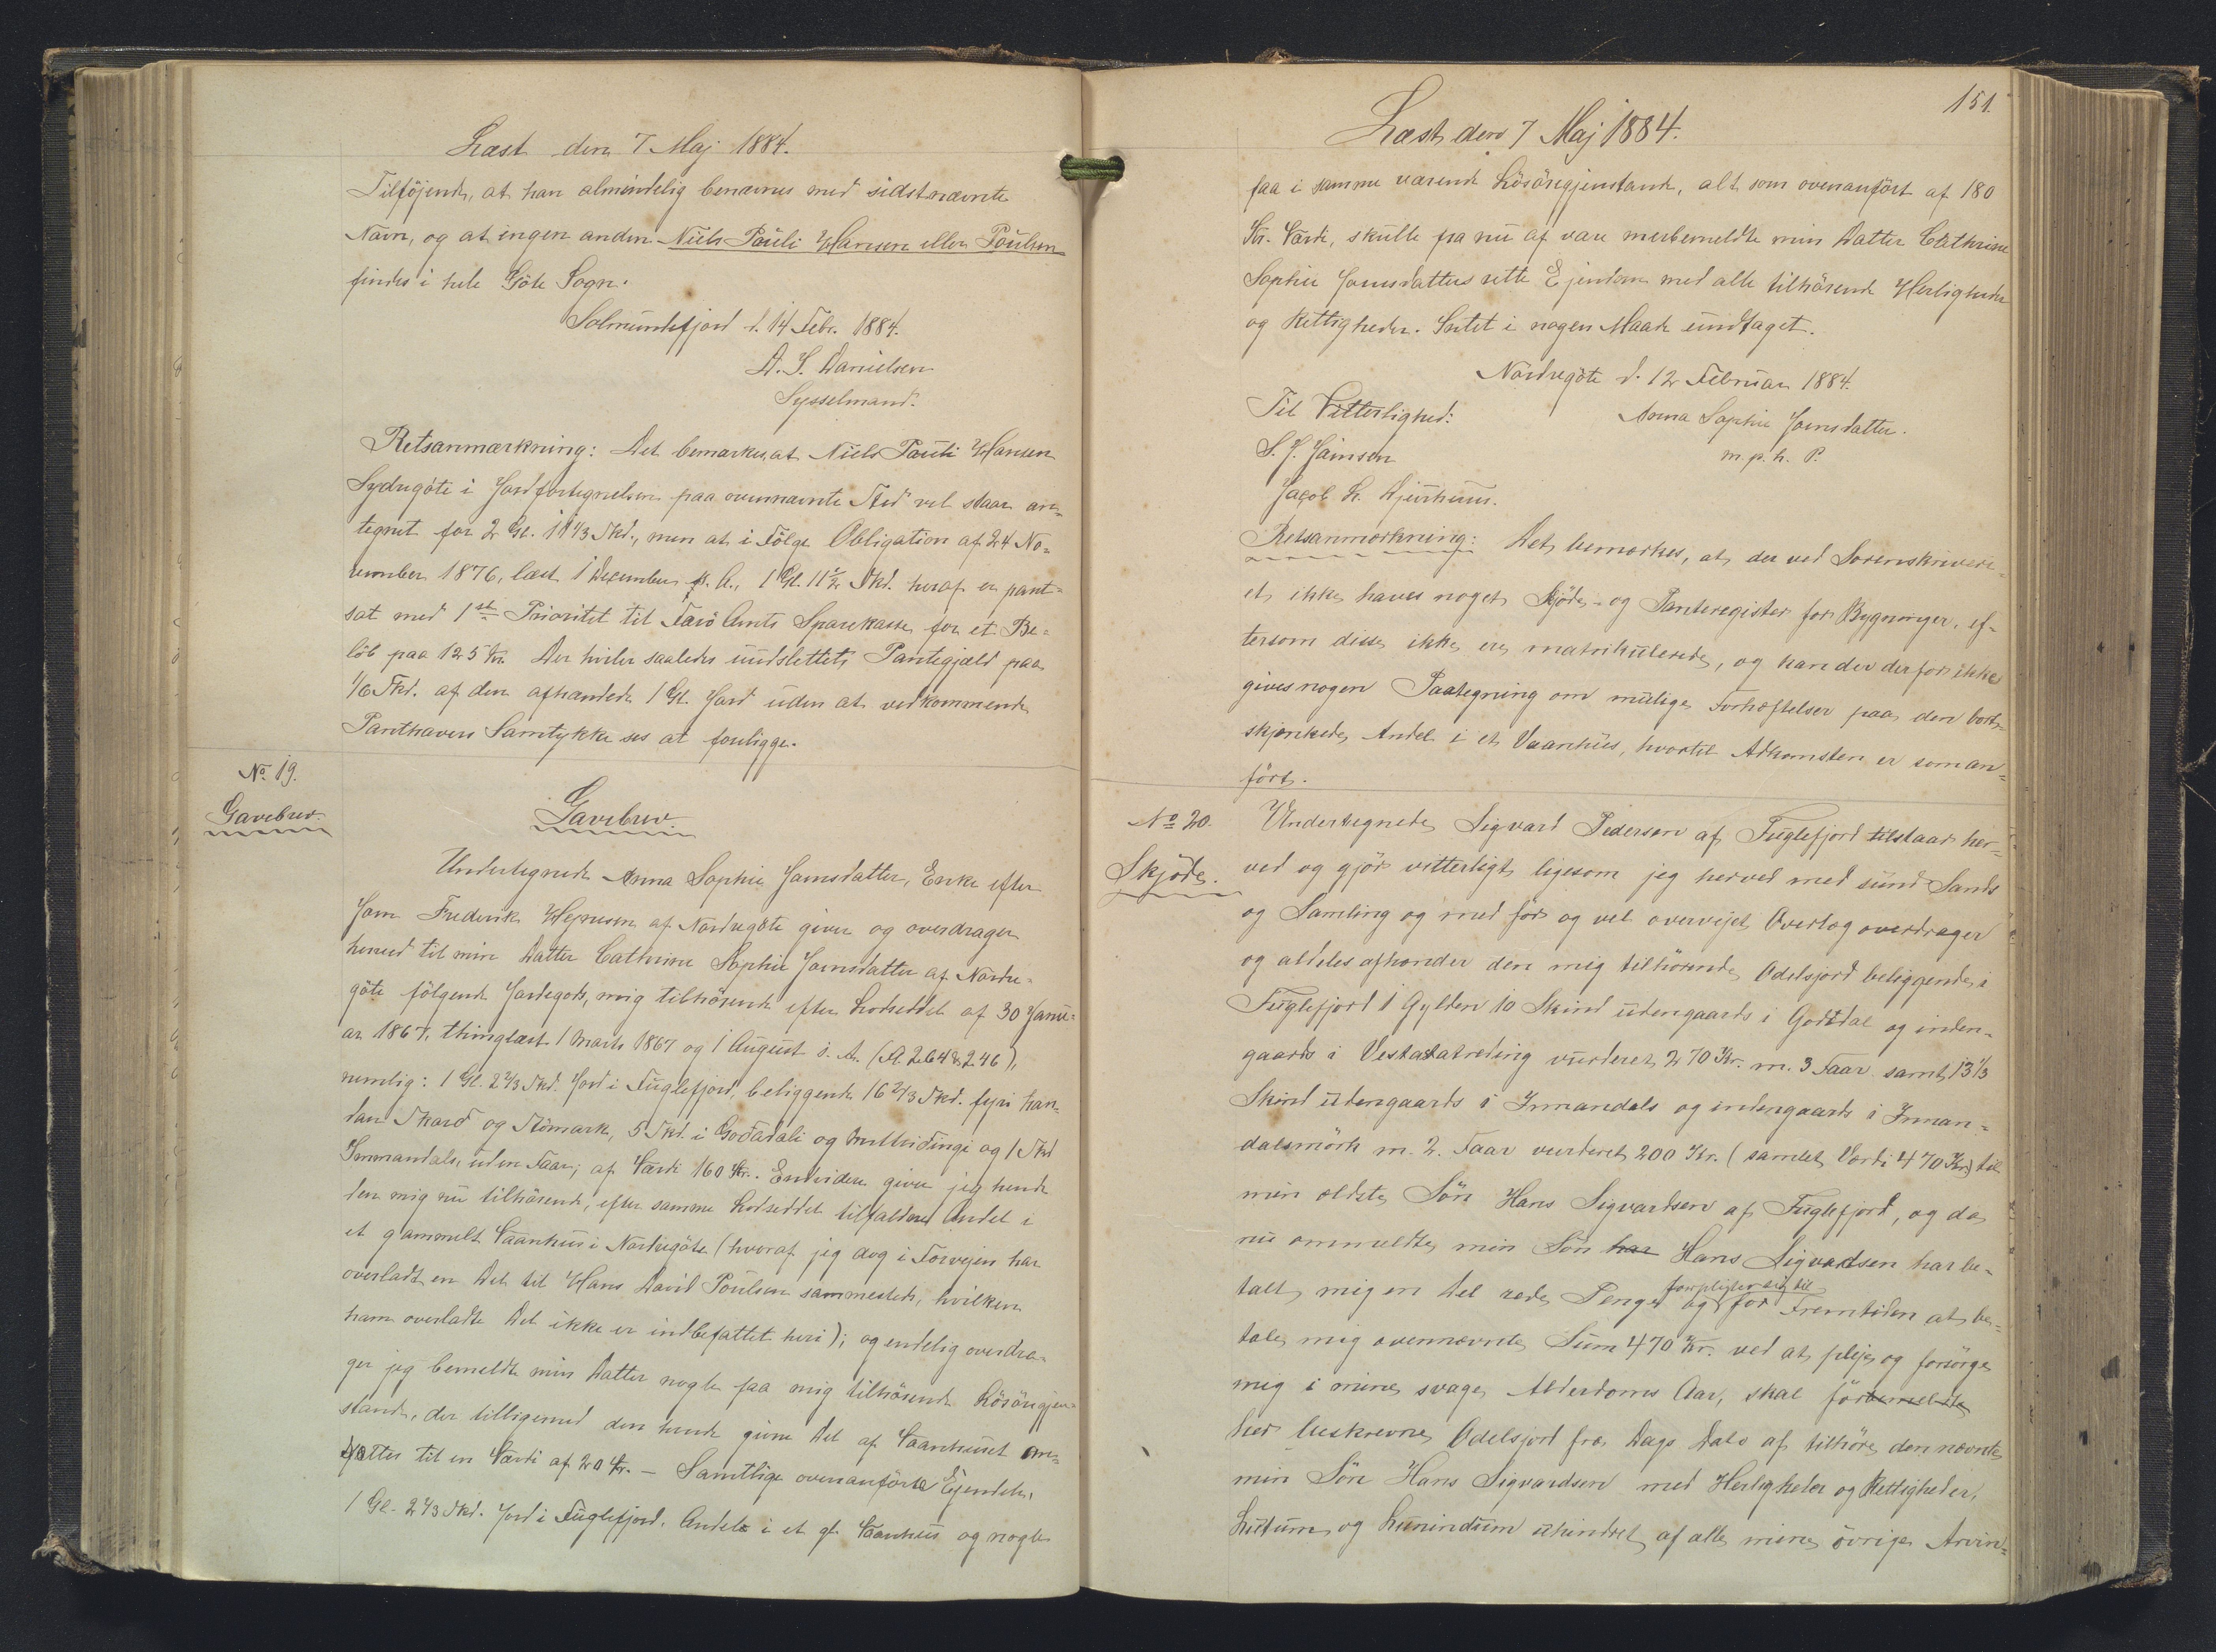 Læst den 7 Maj 1884.
Tilföjende, at han almindelig benævnes med sidstnævnte
Navn, og at ingen anden Niels Pauli Hansen eller Poulsen
findes i hele Göte Sogn.
Solmundefjord d. 14 Febr. 1884.
D. S. Danielsen
Sysselmand.
Retsanmærkning: Det bemærkes, at Niels Pauli Hansen
Sydregöte i Jordfortegnelsen paa ovennævnte Sted vel staar an-
tegnet for 2 Gl. 11 1/3 Skd., men at i Fölge Obligation af 24 No-
vember 1876, læst 1 December s. A., 1 Gl. 11 1/2 Skd. heraf er pant-
sat med 1ste Prioritet til Færö Amts Sparekasse for et Be-
löb paa 125 Kr. Der hviler saaledes uudslettet Pantegjæld paa
1/6 Skd. af den afhændede 1 Gl. Jord uden at vedkommende
Panthavers Samtykke ses at foreligge.
No. 19.
Gavebrev.
Gavebrev.
Undertegnede Anna Sophie Joensdatter, Enke efter
Joen Frederik Hejnesen af Nordregöte giver og overdrager
herved til min Datter Cathrine Sophie Joensdatter af Nordre-
göte fölgende Jordegods, mig tilhörende efter Lodseddel af 30 Janu-
ar 1867, thinglæst 1 Marts 1867 og 1 August s. A. (A. 264 & 246),
nemlig: 1 Gl. 2 2/3 Skd. Jord i Fuglefjord, beliggende 16 2/3 Skd. fyri han-
dan Skard og Stömark, 5 Skd. i Godadali og og 1 Skd
Innmandals, uden Faar, af Værdi 160 Kr. Endvidere giver jeg hende
den mig nu tilhörende, efter samme Lodseddel tilfaldne Andel i
et gammelt Vaanhus i Nordregöte (hvoraf jeg dog i Forvejen har
overladt en Del til Hans David Poulsen sammesteds, hvilken
ham overladte Del ikke er indbefattet heri); og endelig overdra-
ger jeg bemeldte min Datter nogle faa mig tilhörende Lösöregjen-
stande, der tilligemed den hende givne Del af Vaanhuset an-
sættes til en Værdi af 20 Kr. – Samtlige ovenanförte Ejendele,
1 Gl. 2 2/3 Skd. Jord i Fuglefjord, Andele i et gl. Vaanhus og nogle
151
Læst den 7 Maj 1884.
faa i samme værende Lösöregjenstande, alt som ovenanfört af 180
Kr. Værdi, skulle fra nu af være merbemeldte min Datter Cathrine
Sophie Joensdatters rette Ejendom med alle tilhörende Herligheder
og Rettigheder. Intet i nogen Maade undtaget.
Nordregöte d. 12 Februar 1884.
Til Vitterlighed:
Anna Sophie Joensdatter.
m. p. h. P.
S. P. Joensen
Jacob L. Djurhuus.
Retsanmærkning: Det bemærkes, at der ved Sorenskriveri-
et ikke haves noget Skjöde- og Panteregister for Bygninger, ef-
tersom disse ikke ere matrikulerede, og kan der derfor ikke
gives nogen Paategning om mulige Forhæftelser paa den bort-
skjænkede Andel i et Vaanhus, hvortil Adkomsten er soman-
fört.
No 20.
Skjöde.
Undertegnede Sigvard Pedersen af Fuglefjord tilstaar her-
ved og gjör vitterligt ligesom jeg herved med sund Sands
og Samling og med för og vel overvejet Overlæg overdrager
og aldeles afhænder den mig tilhörende Odelsjord beliggende i
Fuglefjord 1 Gylden 10 Skind udengaards i Godedal og inden-
gaards i vurderet 270 Kr. m. 3 Faar samt 13 1/3
Skind udengaards i Innandals og indengaards i Innan-
dalsmörk m. 2. Faar vurderet 200 Kr. (samlet Værdi 470 Kr.) til
min ældste Sön Hans Sigvardsen af Fuglefjord, og da
nu ommeldte min Sön har Hans Sigvardsen har be-
talt mig en Del rede Penge og forpligter sig til for Fremtiden at be-
tale mig ovennævnte Sum 470 Kr. ved at pleje og forsörge
mig i mine svage Alderdoms Aar, skal förbemeldte
her beskrevne Odelsjord fra Dags Dato af tilhöre den nævnte
min Sön Hans Sigvardsen med Herligheder og Rettigheder,
Lutum og Lunindum uhindret af alle mine övrige Arvin-